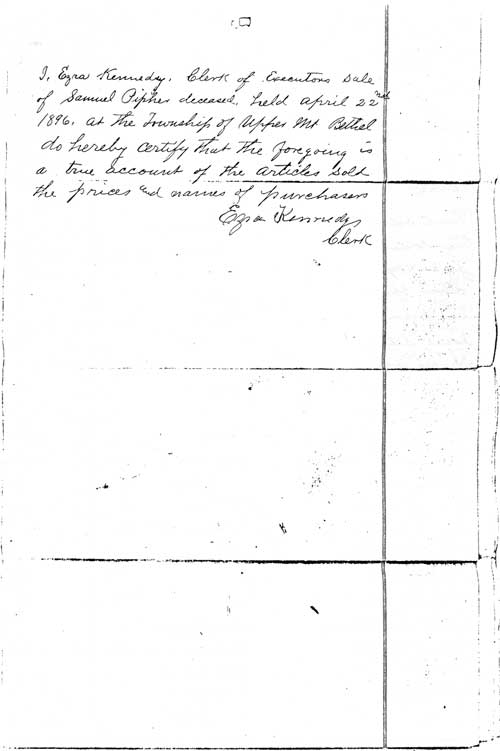 I, Ezra Kennedy, Clerk of Executors Sale
of Samuel Pipher deceased, held April 22nd
1896, at the Township of Upper Mt Bethel
do hereby certify that the foregoing is
a true account of the articles sold
the prices and names of purchasers
Ezra Kennedy
Clerk